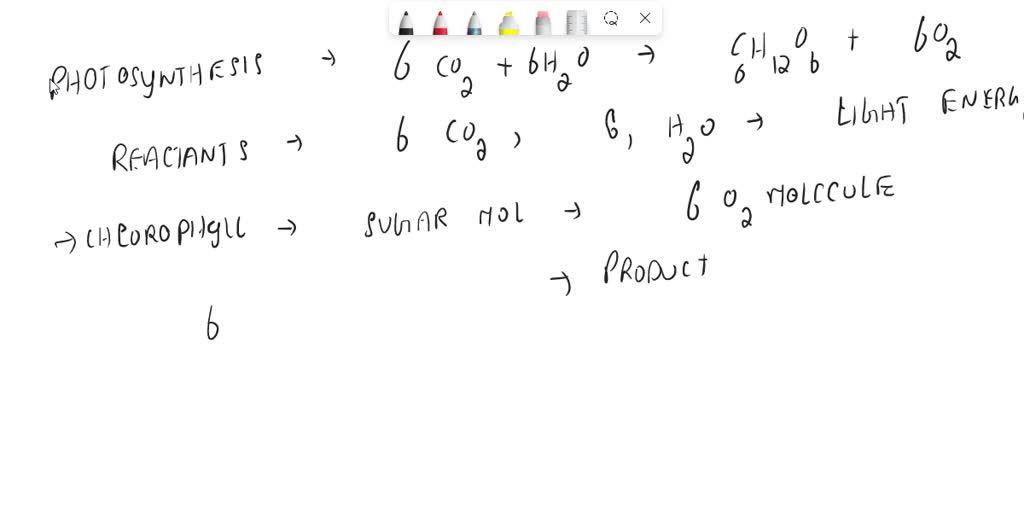 PHOTOSYNTHESIS → 6 CO2 + 6H2O → C6H12O6 + 6O2
REACTANTS → 6 CO2, 6, H2O → LIGHT ENERG
→ CHLOROPHYLL → SUGAR MOL → 6 O2 MOLCCULE
→ PRODUCT
6